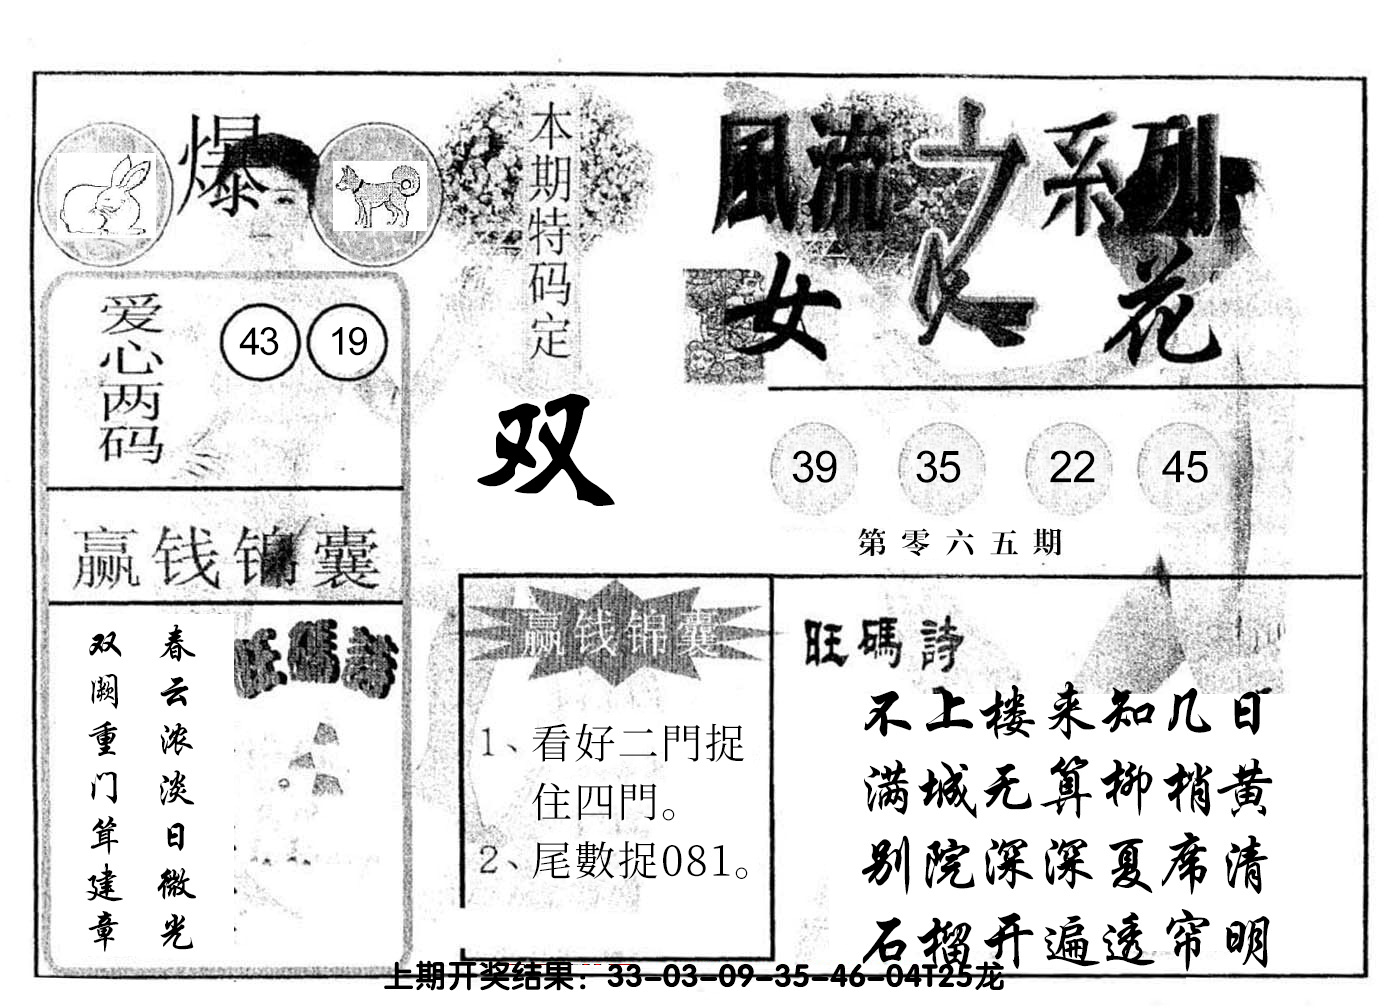 爆
本期特码定
双
風流之系列
女人花
爱心两码
43 19
39 35 22 45
第零六五期
赢钱锦囊
春云浓淡日微光
双阙重门耸建章
旺碼詩
赢钱锦囊
1、看好二門捉
住四門。
2、尾數捉081。
旺碼詩
不上楼来知几日
满城无算柳梢黄
别院深深夏席清
石榴开遍透帘明
上期开奖结果：33-03-09-35-46-04T25龙